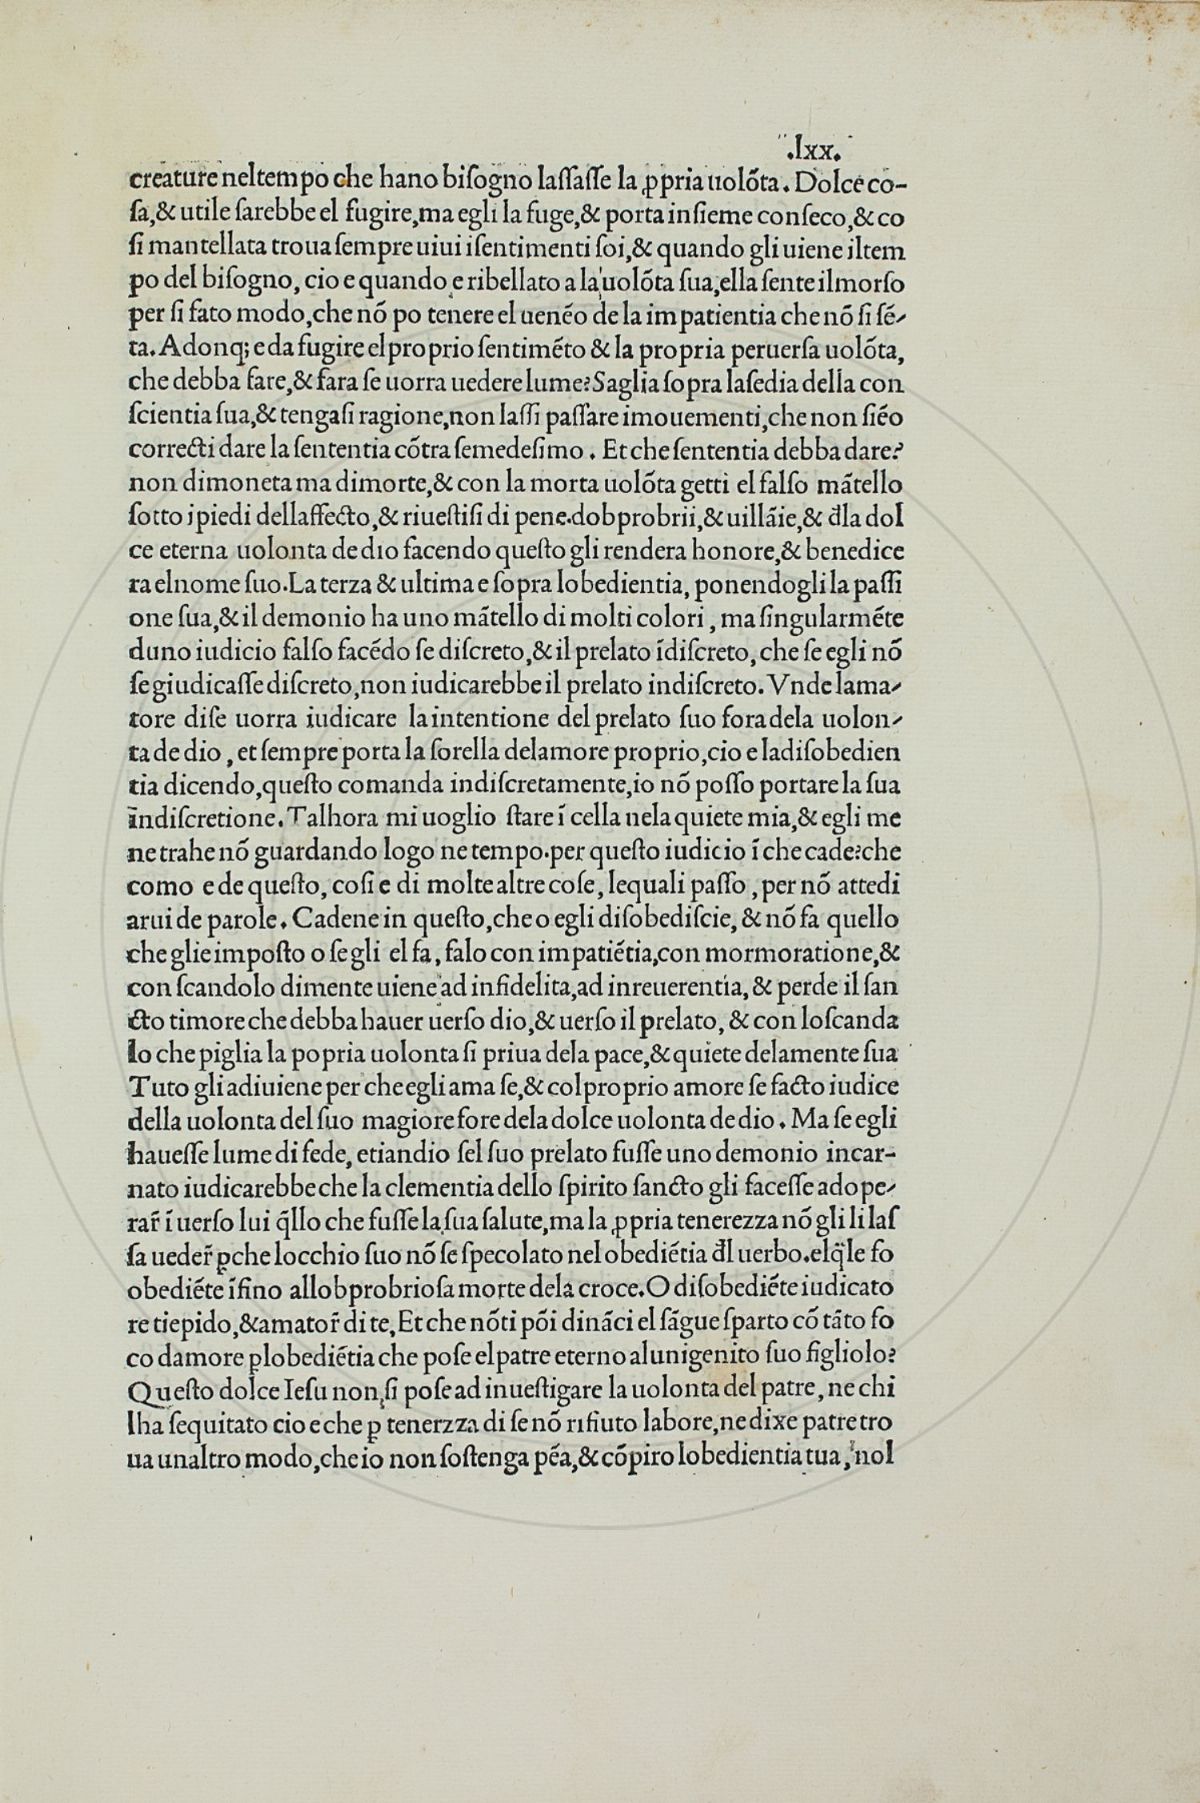 .lxx.
creature neltempo che hano biſogno laſſaſſe la ꝓpria uolõta. Dolce co-
ſa,& utile ſarebbe el fugire,ma egli la fuge,& porta inſieme conſeco,& co
ſi mantellata troua ſempre uiui i ſentimenti ſoi,& quando gli uiene il tem
po del biſogno, cio e quando e ribellato a la uolõta ſua,ella ſente il morſo
per ſi fato modo,che nõ po tenere el uenẽo de la impatientia che nõ ſi ſẽ-
ta. Adonq; e da fugire el proprio ſentimẽto & la propria peruerſa uolõta,
che debba fare,& fara ſe uorra uedere lume? Saglia ſopra la ſedia della con
ſcientia ſua,& tengaſi ragione,non laſſi paſſare i mouementi,che non ſiẽo
correcti dare la ſententia cõtra ſe medeſimo. Et che ſententia debba dare?
non di moneta ma di morte,& con la morta uolõta getti el falſo mãtello
ſotto i piedi dellaffecto,& riueſtiſi di pene.dobprobrii,& uillãie,& đla dol
ce eterna uolonta de dio facendo queſto gli rendera honore,& benedice
ra el nome ſuo. La terza & ultima e ſopra lobedientia, ponendogli la paſſi
one ſua,& il demonio ha uno mãtello di molti colori, ma ſingularmẽte
duno iudicio falſo facẽdo ſe diſcreto,& il prelato ĩdiſcreto, che ſe egli nõ
ſe giudicaſſe diſcreto,non iudicarebbe il prelato indiſcreto. Vnde lama-
tore di ſe uorra iudicare la intentione del prelato ſuo fora dela uolon-
ta de dio, et ſempre porta la ſorella delamore proprio,cio e la diſobedien
tia dicendo,queſto comanda indiſcretamente,io nõ poſſo portare la ſua
indiſcretione. Talhora mi uoglio ſtare ĩ cella nela quiete mia,& egli me
ne trahe nõ guardando logo ne tempo.per queſto iudicio ĩ che cade? che
como e de queſto, coſi e di molte altre coſe, lequali paſſo, per nõ attedi
arui de parole. Cadene in queſto,che o egli diſobediſcie, & nõ fa quello
che glie impoſto o ſe gli el fa, falo con impatiẽtia,con mormoratione,&
con ſcandolo di mente uiene ad infidelita,ad inreuerentia, & perde il ſan
cto timore che debba hauer uerſo dio,& uerſo il prelato, & con lo ſcanda
lo che piglia la popria uolonta ſi priua dela pace,& quiete dela mente ſua
Tuto gli adiuiene per che egli ama ſe,& col proprio amore ſe facto iudice
della uolonta del ſuo magiore fore dela dolce uolonta de dio. Ma ſe egli
haueſſe lume di fede, etiandio ſel ſuo prelato fuſſe uno demonio incar-
nato iudicarebbe che la clementia dello ſpirito ſancto gli faceſſe adope-
rar̃ ĩ uerſo lui q̃llo che fuſſe la ſua ſalute,ma la ꝓpria tenerezza nõ gli li laſ
ſa ueder̃ ꝑche locchio ſuo nõ ſe ſpecolato nel obediẽtia đl uerbo.elq̃le fo
obediẽte ĩfino allobprobrioſa morte dela croce. O diſobediẽte iudicato
re tiepido,& amator̃ di te, Et che nõ ti põi dinãci el ſãgue ſparto cõ tãto fo
co damore ꝑ lobediẽtia che poſe el patre eterno al unigenito ſuo figliolo?
Queſto dolce Ieſu non ſi poſe ad inueſtigare la uolonta del patre, ne chi
lha ſequitato cio e che ꝑ tenerzza di ſe nõ rifiuto labore,ne dixe patre tro
ua unaltro modo,che io non ſoſtenga pẽa,& cõpiro lobedientia tua, nol